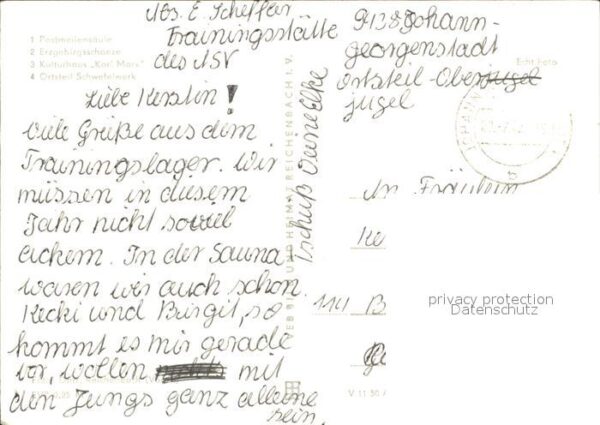 Abs. E. Scheffer
Trainingsstätte
des ASV
9438 Johann-
georgenstadt
Ortsteil-Oberjugel
jugel
1 Postmeilensäule
2 Erzgebirgsschanze
3 Kulturhaus „Karl Marx“
4 Ortsteil Schwefelwerk
Echt Foto
Liebe Kerstin!
viele Grüße aus dem
Trainingslager. Wir
müssen in diesem
Jahr nicht soviel
ackern. In der Sauna
waren wir auch schon.
Kecki und Birgit, so
kommt es mir gerade
vor, wollen mit
den Jungs ganz alleine
sein.
Tschüß Deine Elke
BILD UND HEIMAT REICHENBACH I. V.
An Fräulein
Ke
1141 B
privacy protection
Datenschutz
V 11 50 A